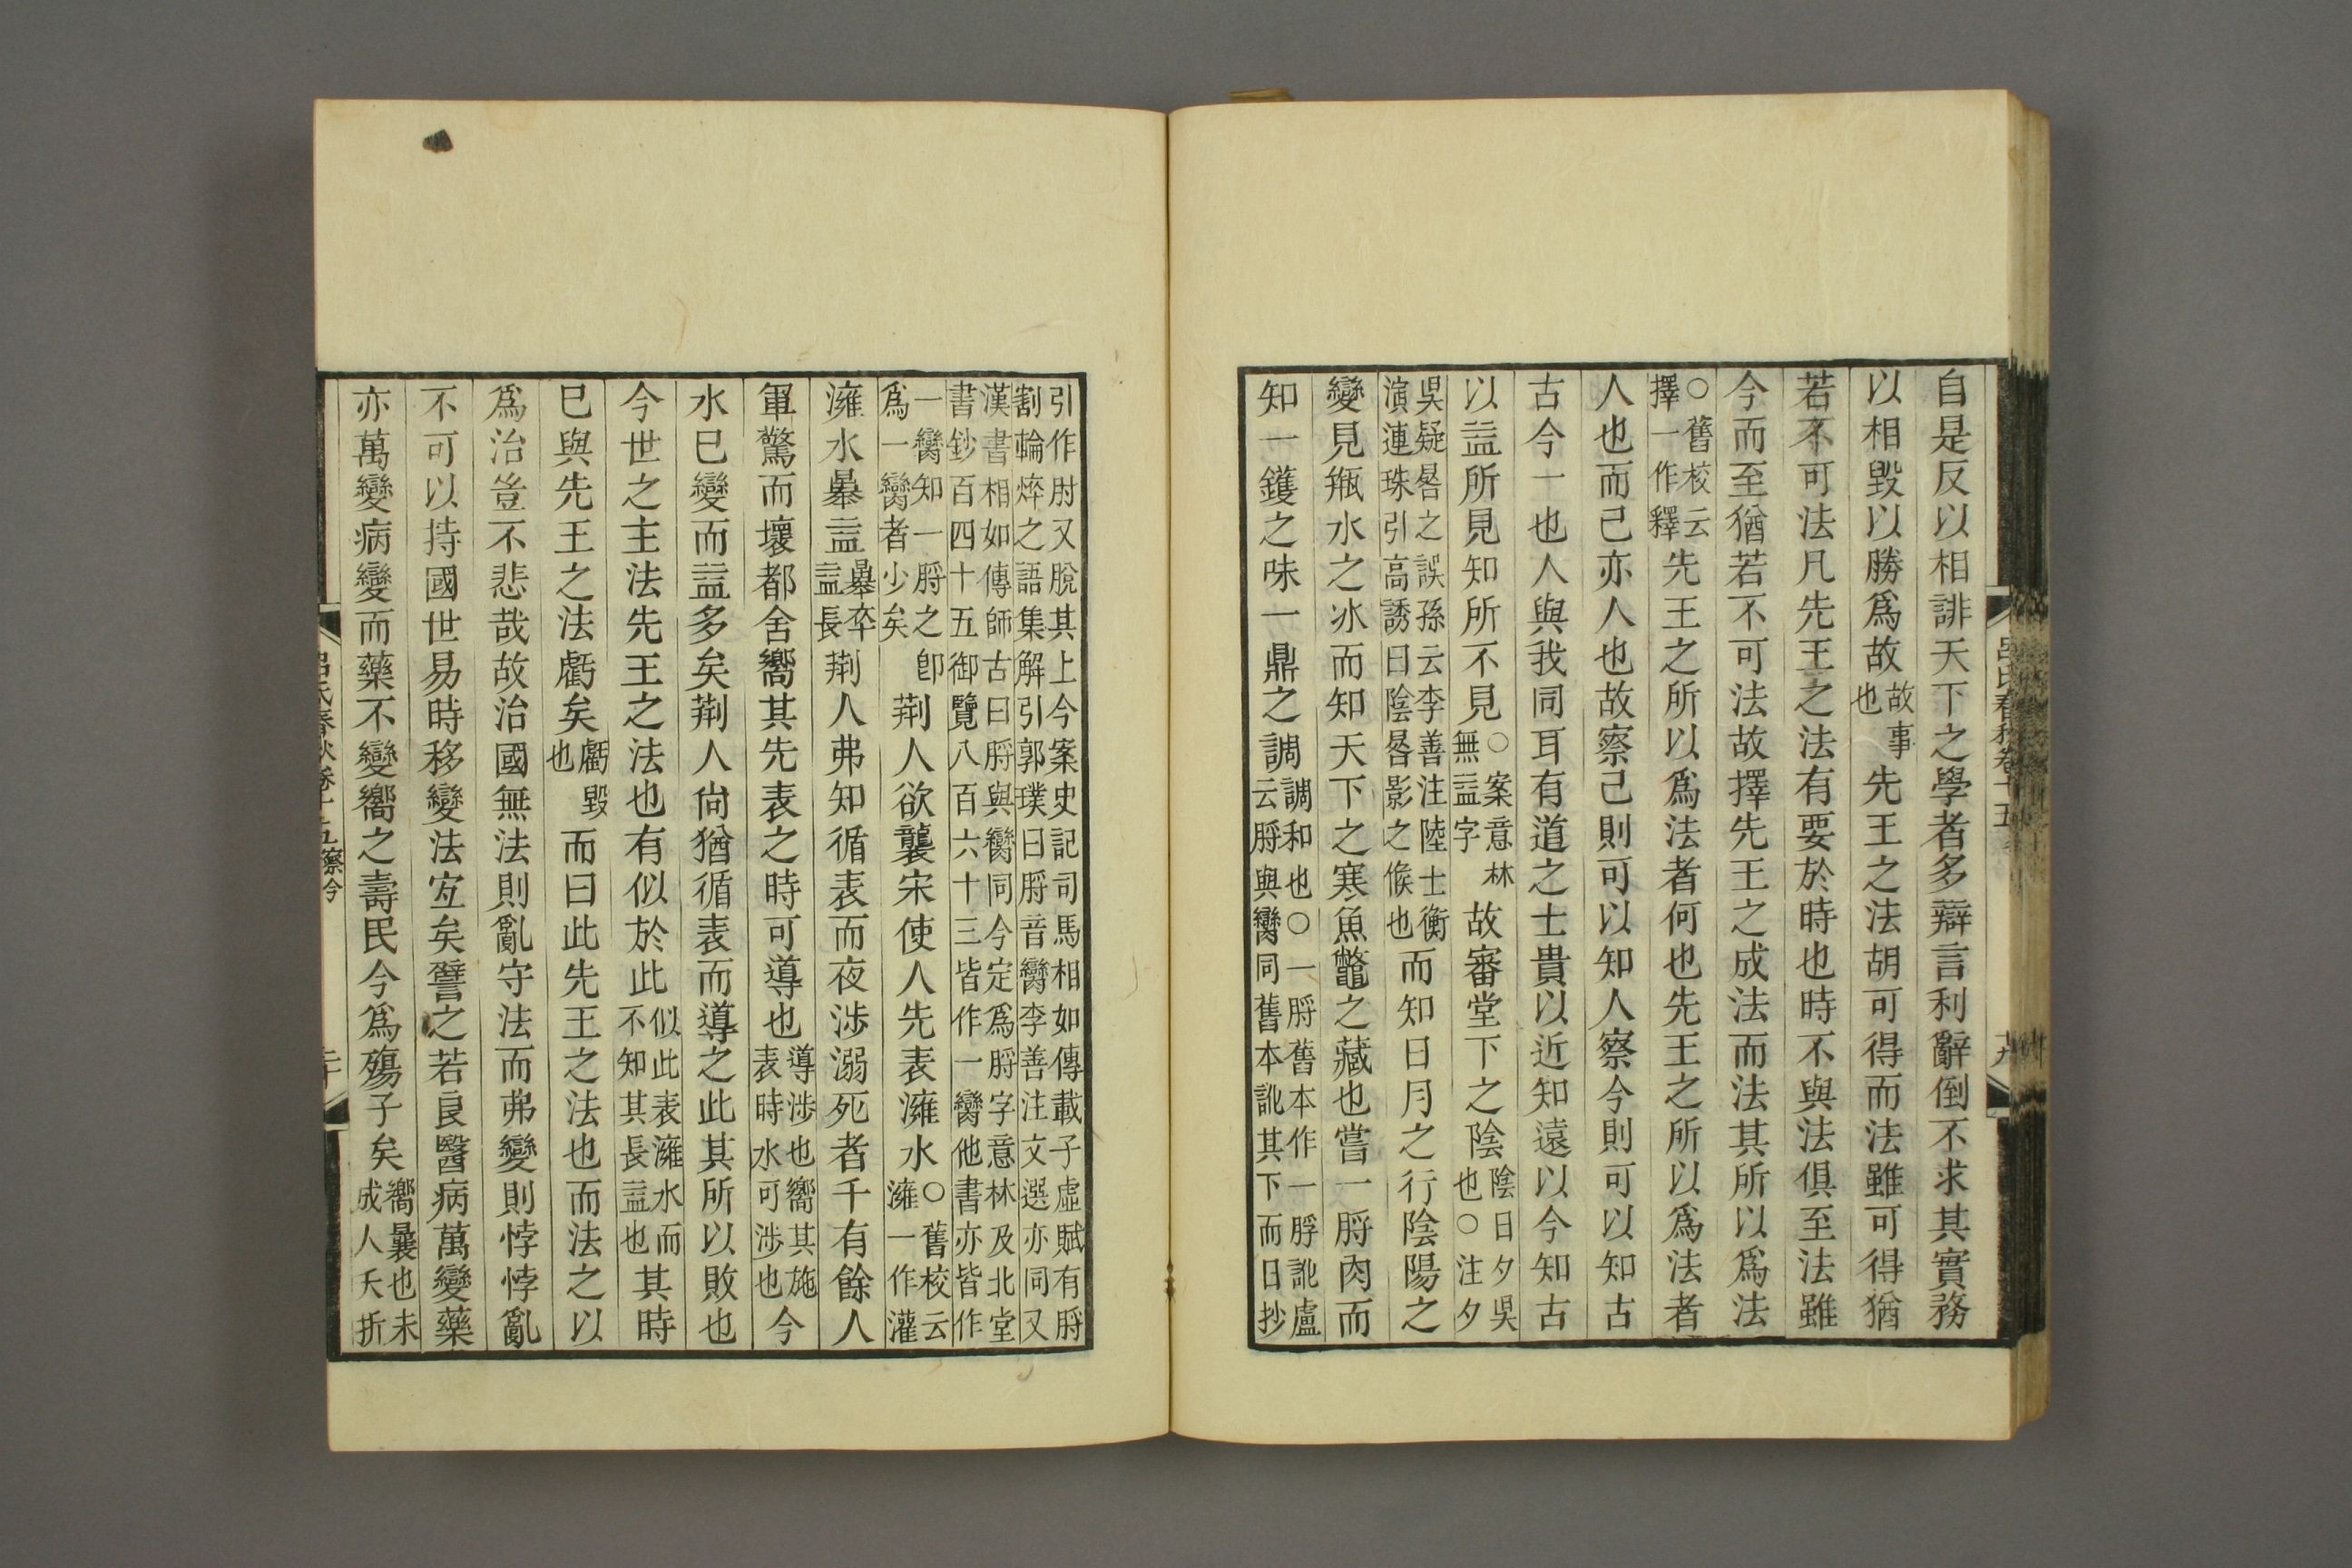 自是反以相誹天下之學者多辯言利辭倒不求其實務
以相毀以勝爲故故事也先王之法胡可得而法雖可得猶
若不可法凡先王之法有要於時也時不與法俱至法雖
今而至猶若不可法故擇先王之成法而法其所以爲法
○舊校云擇一作釋先王之所以爲法者何也先王之所以爲法者
人也而己亦人也故察己則可以知人察今則可以知古
古今一也人與我同耳有道之士貴以近知遠以今知古
以益所見知所不見○案意林無益字故審堂下之陰陰日夕昃也○注夕
昃疑晷之誤孫云李善注陸士衡演連珠引高誘曰陰晷影之候也而知日月之行陰陽之
變見瓶水之冰而知天下之寒魚鼈之藏也嘗一脟肉而
知一鑊之味一鼎之調調和也○一脟舊本作一脬訛盧云脟與臠同舊本訛其下而日抄
呂氏春秋卷十五
十九
引作肘又脫其上今案史記司馬相如傳載子虛賦有脟割輪焠之語集解引郭璞曰脟音臠李善注文選亦同又
漢書相如傳師古曰脟與臠同今定爲脟字意林及北堂書鈔百四十五御覽八百六十三皆作一臠他書亦皆作
一臠知一脟之卽爲一臠者少矣荆人欲襲宋使人先表澭水○舊校云澭一作灌
澭水暴益暴卒益長荆人弗知循表而夜涉溺死者千有餘人
軍驚而壞都舍嚮其先表之時可導也導涉也嚮其施表時水可涉也今
水已變而益多矣荆人尙猶循表而導之此其所以敗也
今世之主法先王之法也有似於此似此表澭水而不知其長益也其時
已與先王之法虧矣虧毀也而曰此先王之法也而法之以
爲治豈不悲哉故治國無法則亂守法而弗變則悖悖亂
不可以持國世易時移變法宐矣譬之若良醫病萬變藥
亦萬變病變而藥不變嚮之壽民今爲殤子矣嚮曩也未成人夭折
呂氏春秋卷十五察今
二十